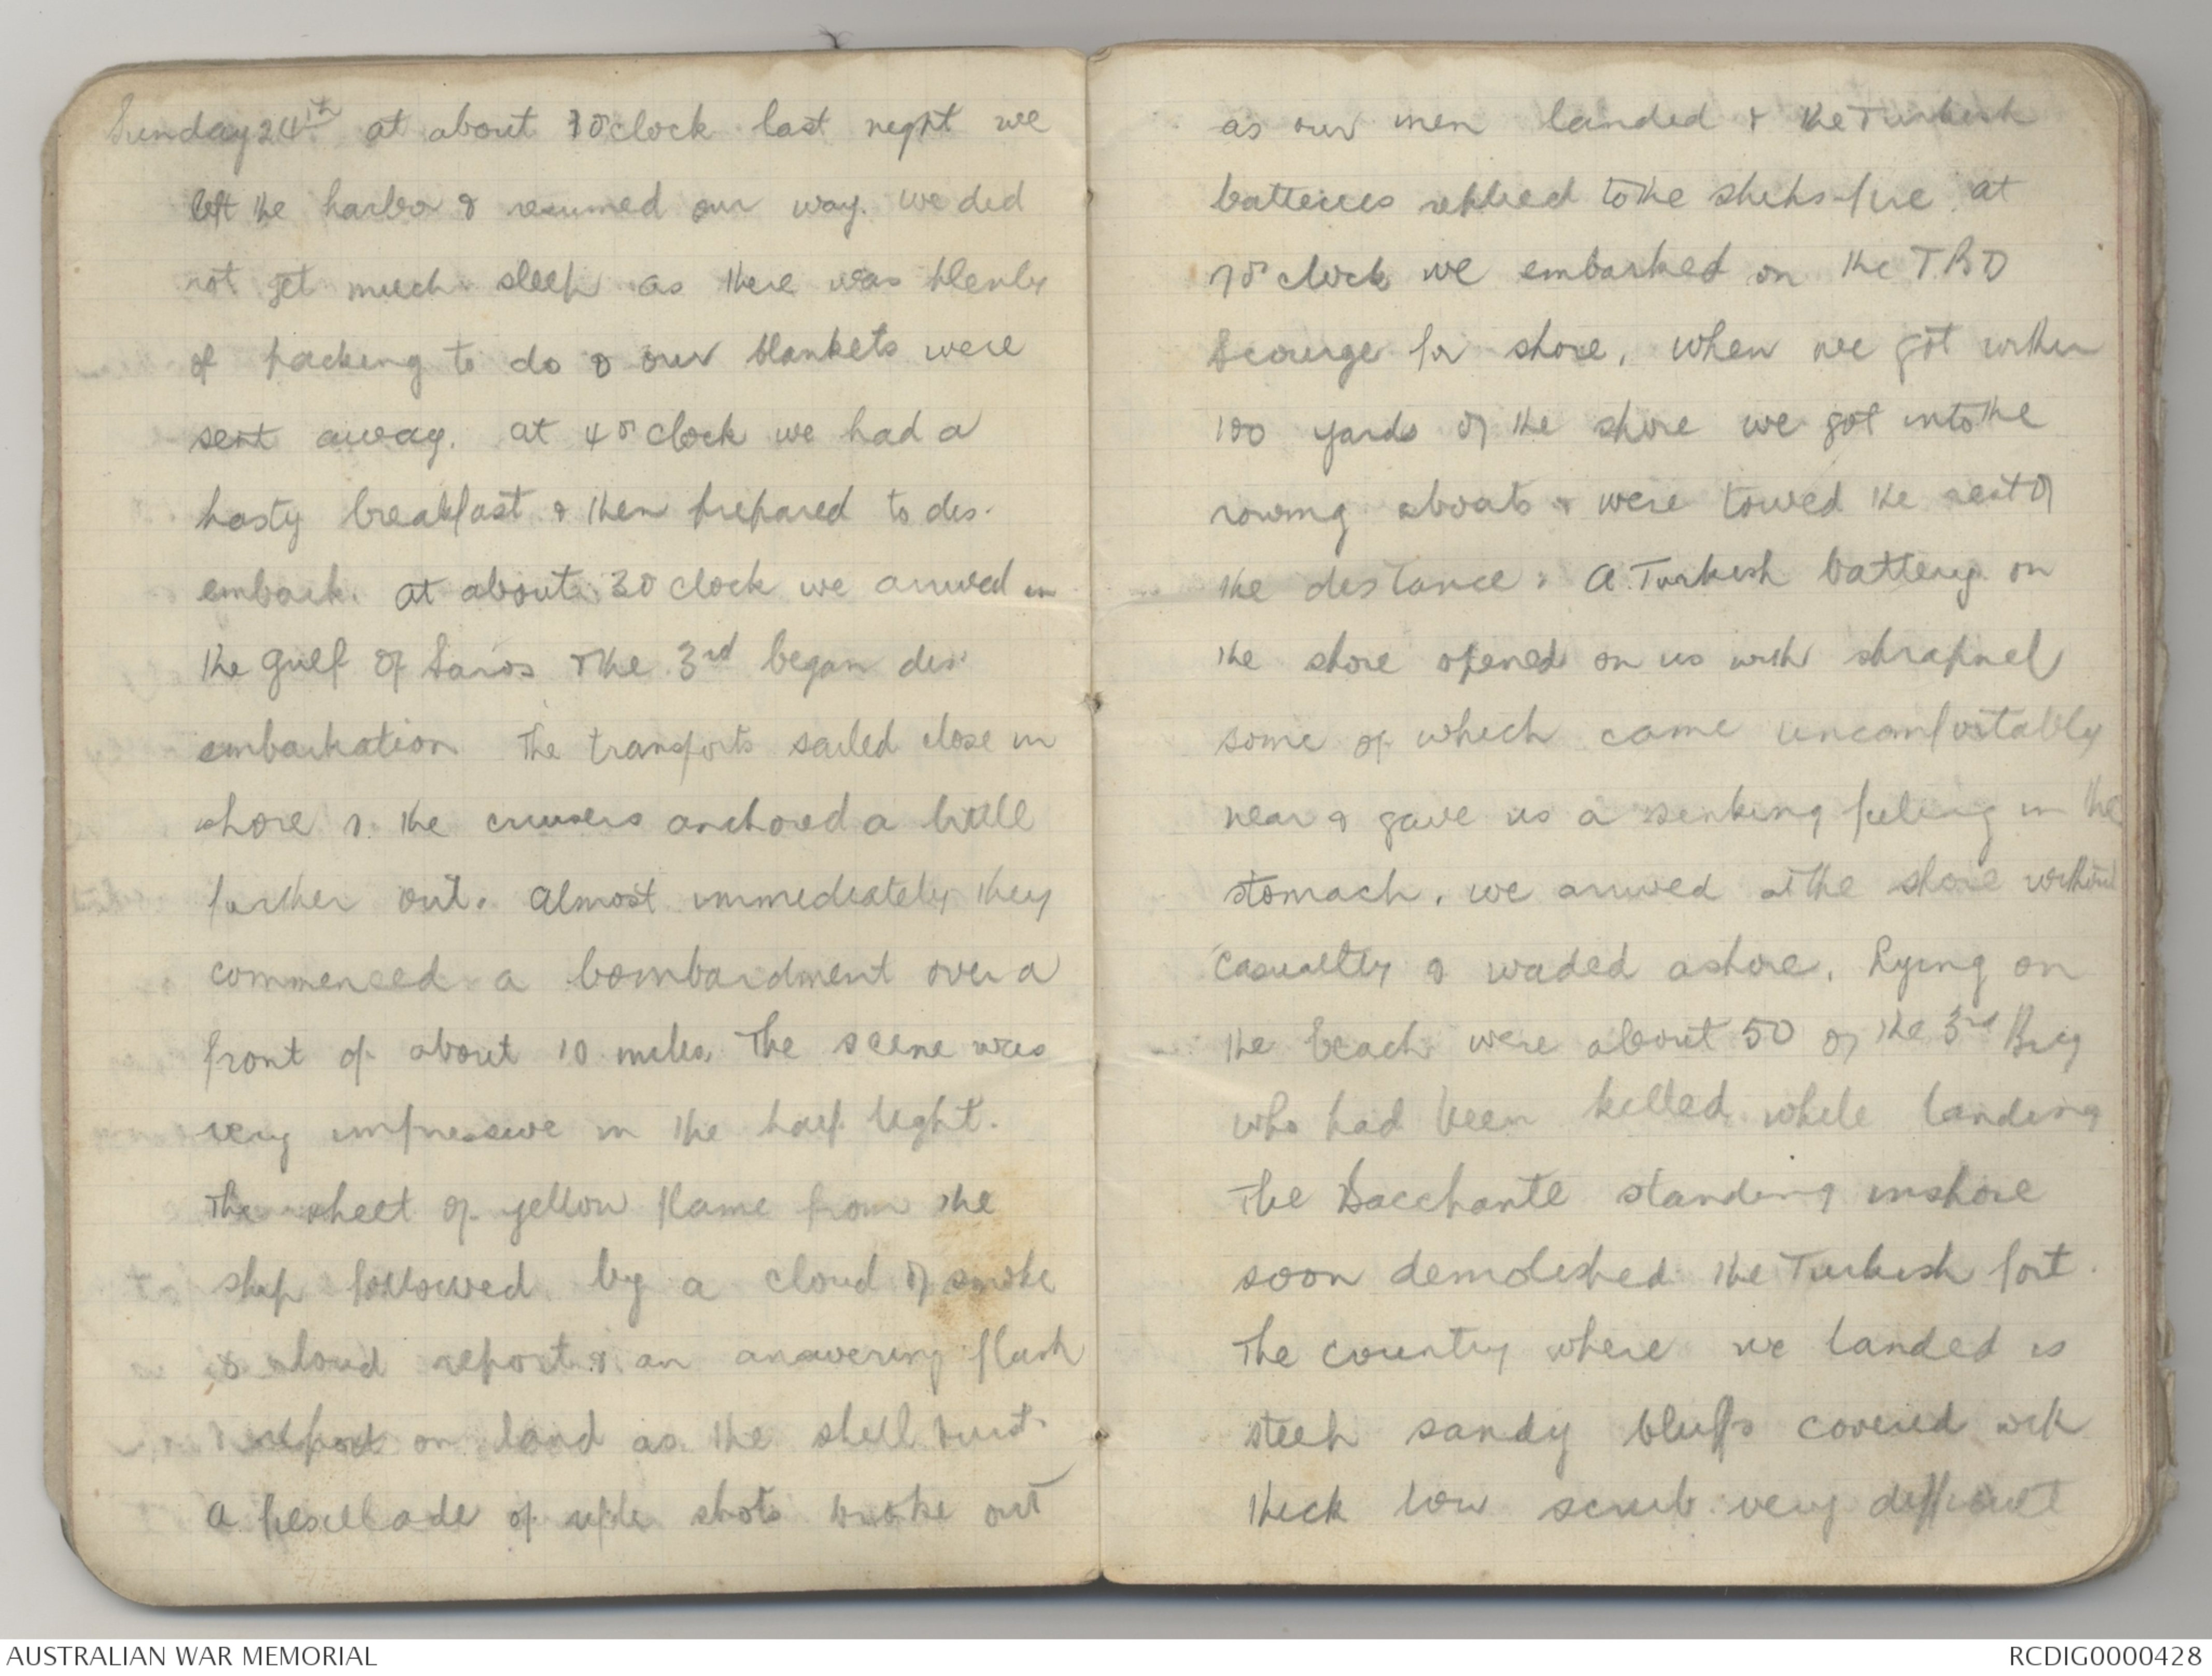 Sunday 24th at about o'clock last night we
left the harbor & resumed our way. we did
not get much sleep as there was plenty
of packing to do & our blankets were
sent away. at 4 o'clock we had a
hasty breakfast & then prepared to dis-
embark. at about 3 o'clock we arrived in
the Gulf of Saros & the 3rd began dis-
embarkation The transports sailed close in
shore & the cruisers anchored a little
further out. Almost immediately they
commenced a bombardment over a
front of about 10 miles. The scene was
very impressive in the half light.
The sheet of yellow flame from the
ship followed by a cloud of smoke
& loud report & an answering flash
& report on land as the shell burst.
A fusillade of rifle shots broke out
as our men landed & the Turkish
batteries replied to the ships fire. at
7 o'clock we embarked on the TBD
Scourge for shore, when we got within
100 yards of the shore we got into the
rowing boats & were towed the rest of
the distance. A Turkish battery on
the shore opened on us with shrapnel
some of which came uncomfortably
near & gave us a sinking feeling in the
stomach. we arrived at the shore without
casualty & waded ashore. Lying on
the beach were about 50 of the 3rd Brig
who had been killed while landing
The Bacchante standing inshore
soon demolished the Turkish fort.
The country where we landed is
steep sandy bluffs covered with
thick low scrub very difficult
AUSTRALIAN WAR MEMORIAL
RCDIG0000428